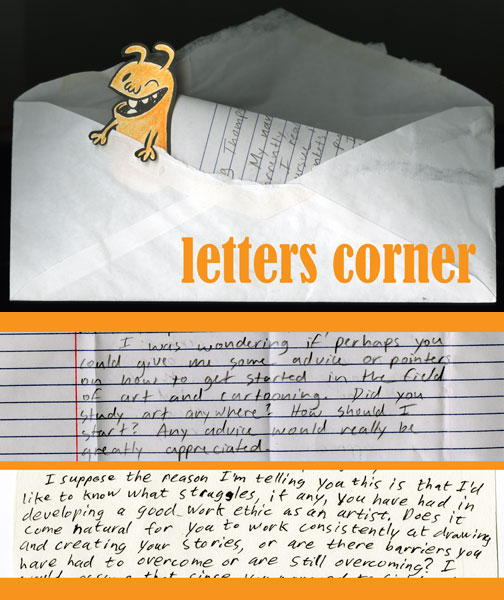 Thomp
My
rrently
I rea
letters corner
I was wondering if perhaps you
could give me some advice or pointers
on how to get started in the field
of art and cartooning. Did you
study art anywhere? How should I
start? Any advice would really be
greatly appreciated.
I suppose the reason I'm telling you this is that I'd
like to know what struggles, if any, you have had in
developing a good work ethic as an artist. Does it
come natural for you to work consistently at drawing
and creating your stories, or are there barriers you
have had to overcome or are still overcoming? I